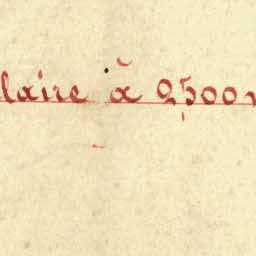 laire à 2500